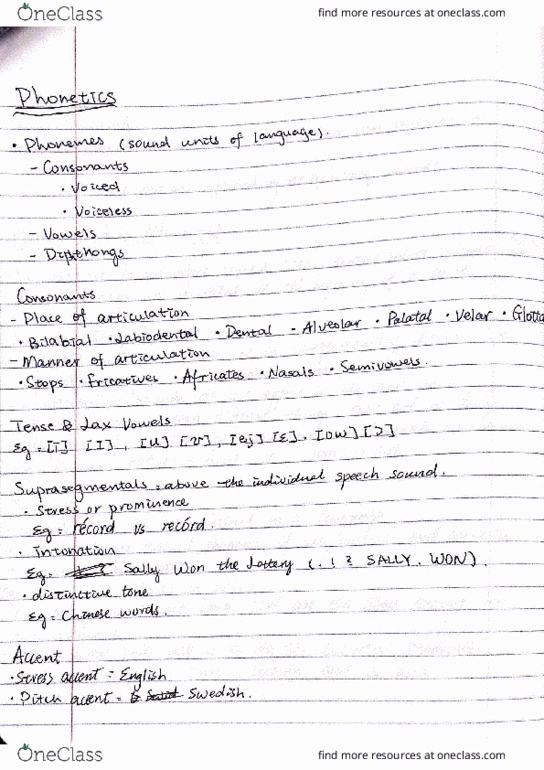 OneClass find more resources at oneclass.com
Phonetics
• Phonemes (sound units of language).
- Consonants
• Voiced
• Voiceless
- Vowels
- Dipthongs
Consonants
- Place of articulation
• Bilabial • Labiodental • Dental • Alveolar • Palatal • Velar • Glotta
- Manner of articulation
• Stops • Fricatives • Africates • Nasals • Semivowels.
Tense & Lax Vowels
Eg = [i] [I], [u] [ʊ], [ej] [ɛ], [ow] [ɔ]
Suprasegmentals = above the individual speech sound.
• Stress or prominence
Eg = récord vs recórd.
• Intonation
Eg. Sally Won the lottery (. ! ? SALLY. WON).
• distinctive tone
Eg = Chinese words.
Accent
• Stress accent = English
• Pitch accent = Swedish.
OneClass find more resources at oneclass.com